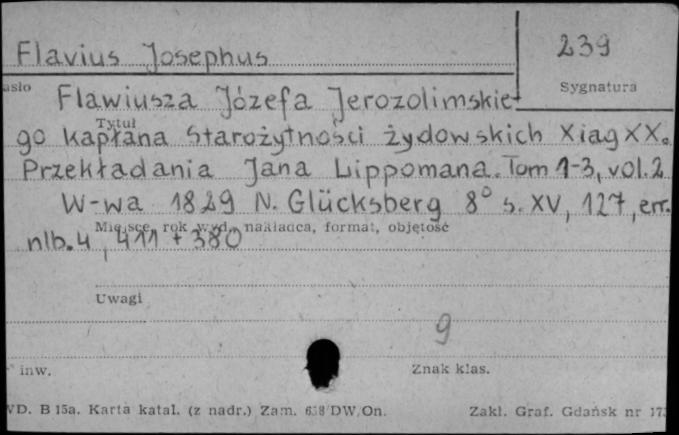 Flavius Josephus
239
asło
Sygnatura
Flawiusza Józefa Jerozolimskie-
Tytuł
go kapłana Starożytności żydowskich Xiag XX.
Przekładania Jana Lippomana. Tom 1-3, vol. 2
W-wa 1829 N. Glücksberg 8° s. XV, 127, err.
Miejsce, rok wyd., nakładca, format, objętość
nlb. 4, 411 + 380
Uwagi
9
inw.
Znak klas.
WD. B 15a. Karta katal. (z nadr.) Zam. DW/On.
Zakł. Graf. Gdańsk nr 173